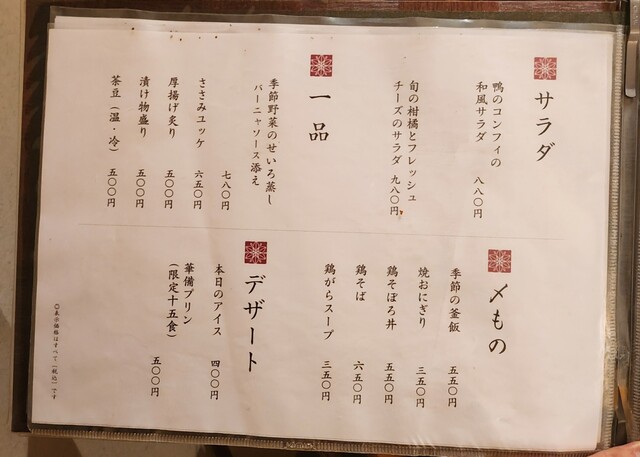 サラダ
鴨のコンフィの
和風サラダ 八八〇円
旬の柑橘とフレッシュ
チーズのサラダ 九八〇円
一品
季節野菜のせいろ蒸し
バーニャソース添え
七八〇円
ささみユッケ 六五〇円
厚揚げ炙り 五〇〇円
漬け物盛り 五〇〇円
茶豆(温・冷) 五〇〇円
〆もの
季節の釜飯 五五〇円
焼おにぎり 三五〇円
鶏そぼろ丼 五五〇円
鶏そば 六五〇円
鶏がらスープ 三五〇円
デザート
本日のアイス 四〇〇円
華備プリン
(限定十五食) 五〇〇円
◎表示価格はすべて「税込」です